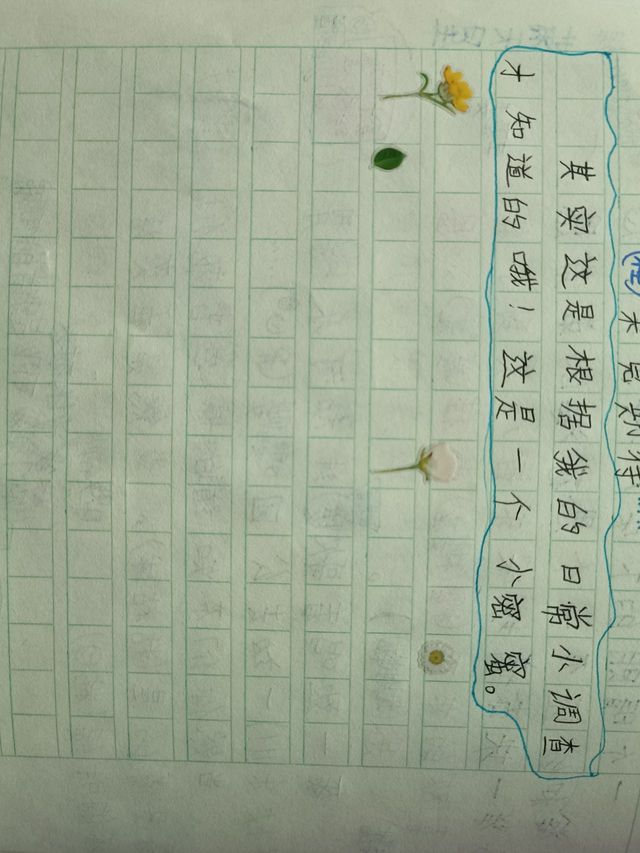 未完期待
其实这是根据我的日常小调查
才知道的哦！这是一个小密蜜。